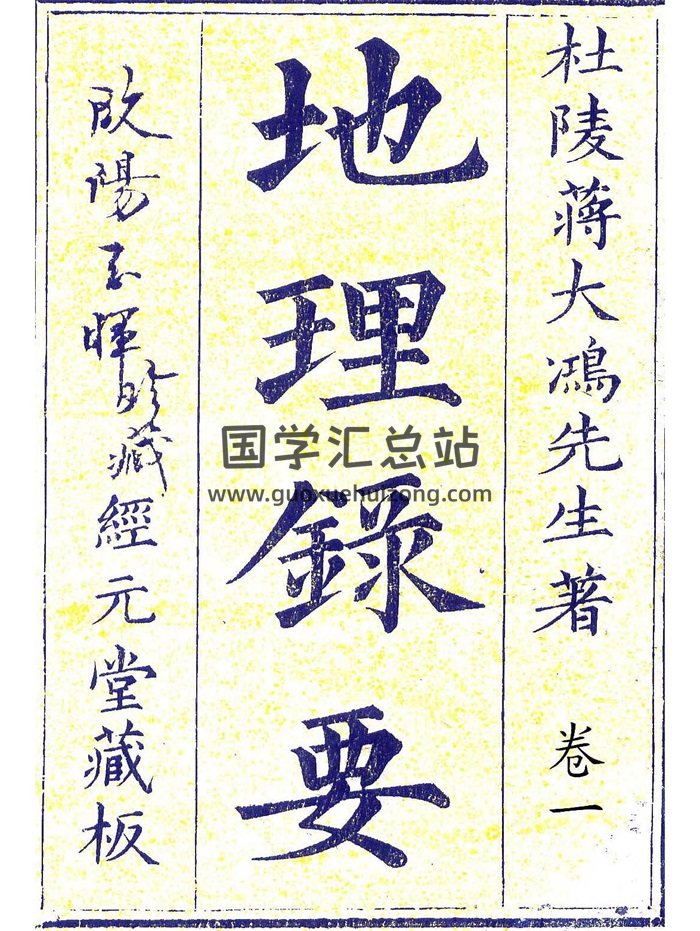 杜陵蔣大鴻先生著 卷一
地理錄要
欧陽玉暉珍藏經元堂藏板
国学汇总站
www.guoxuehuizong.com